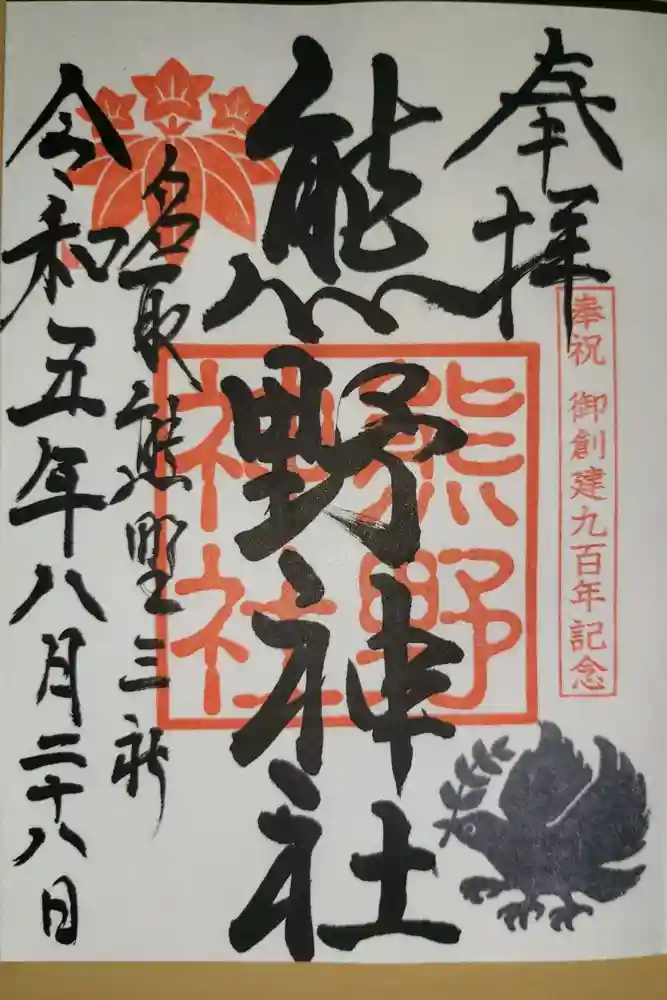 奉拝
奉祝 御創建九百年記念
熊野神社
熊野
神社
名取熊野三社
令和五年八月二十八日